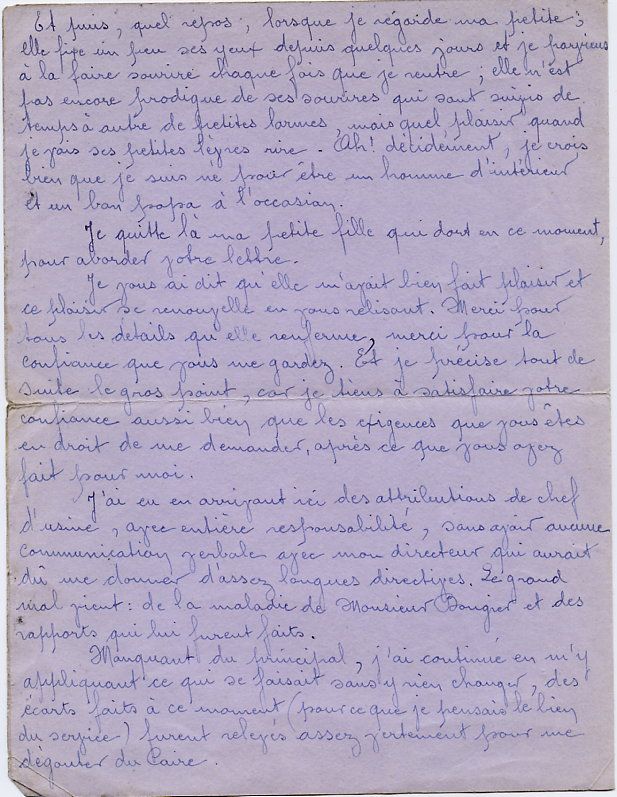 Et puis, quel repos, lorsque je regarde ma petite ;
elle fixe un peu ses yeux depuis quelques jours et je parviens
à la faire sourire chaque fois que je rentre ; elle n'est
pas encore prodigue de ses sourires qui sont suivis de
temps à autre de petites larmes, mais quel plaisir quand
je vois ses petites lèvres rire. Ah ! décidément, je crois
bien que je suis né pour être un homme d'intérieur
et un bon papa à l'occasion.
Je quitte là ma petite fille qui dort en ce moment,
pour aborder votre lettre.
Je vous ai dit qu'elle m'avait bien fait plaisir et
ce plaisir se renouvelle en vous relisant. Merci pour
tous les détails qu'elle renferme, merci pour la
confiance que vous me gardez. Et je précise tout de
suite le gros point, car je tiens à satisfaire votre
confiance aussi bien que les exigences que vous êtes
en droit de me demander, après ce que vous avez
fait pour moi.
J'ai eu en arrivant ici des attributions de chef
d'usine, avec entière responsabilité, sans avoir aucune
communication verbale avec mon directeur qui aurait
dû me donner d'assez longues directives. Le grand
mal vient : de la maladie de Monsieur Bougier et des
rapports qui lui furent faits.
Manquant du principal, j'ai continué en m'y
appliquant ce qui se faisait sans y rien changer, des
écarts faits à ce moment (pour ce que je pensais le bien
du service) furent relevés assez vertement pour me
dégouter du Caire.